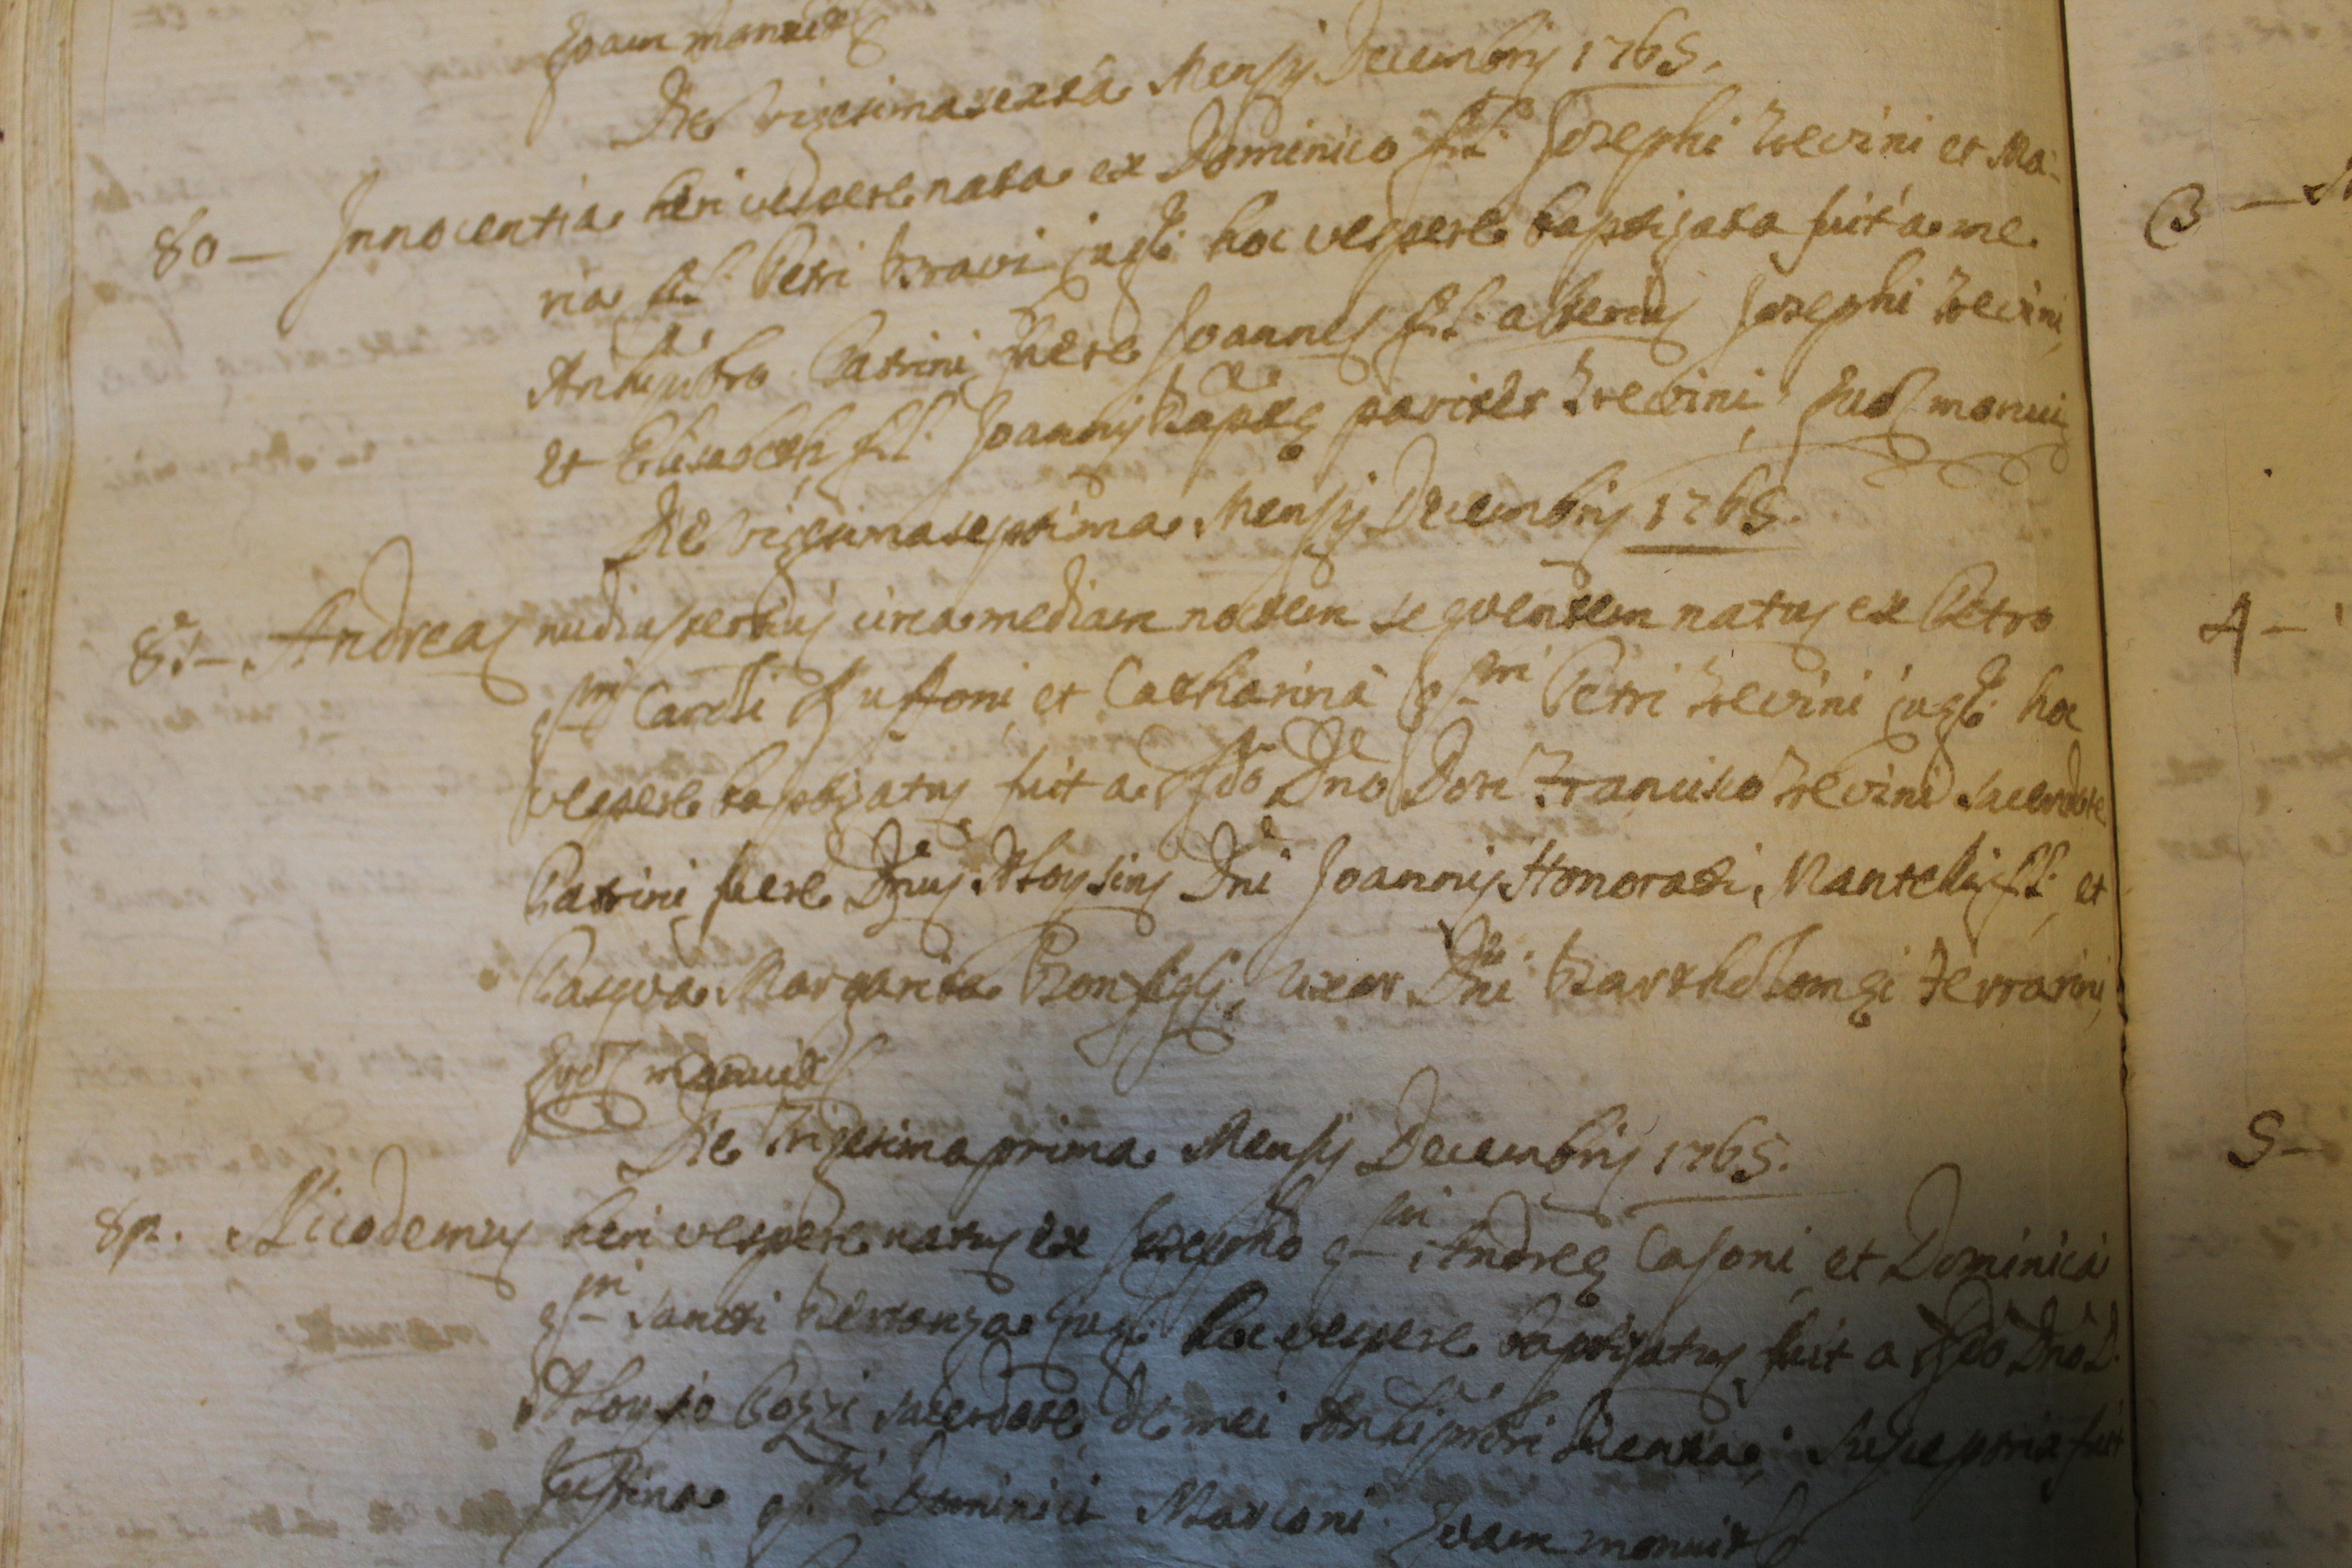 Quam monuit
Die vigesimasexta Mensis Decembris 1765.
80 — Innocentia heri vespere nata ex Dominico fil. Josephi Trevini et Ma-
ria fil. Petri Bravi jugli hoc vespere baptizata fuit a me
Archipbro Patrini fuere Joannes fil. alterius Josephi Trevini,
et Elisabeth fil. Joannis Baptæ pariter Trevini, quos monui
Die vigesimaseptima Mensis Decembris 1765.
81 — Andreas nudiustertius circa mediam noctem sequentem natus ex Petro
qm Caroli et Catharina qm Petri Trevini jugli hoc
vespere baptizatus fuit a Rdo Dno Don Francisco Trevini sacerdote
Patrini fuere Dnus Aloysius Dni Joannis Honorati Mantelli fil. et
Pasqua Margarita uxor Dni Bartholomęi Ferrarini,
quos monuit
Die Trigesimaprima Mensis Decembris 1765.
82. Nicodemus heri vespere natus ex Josepho qm Andreę Casoni et Dominica
qm Sancti jugli hoc vespere baptizatus fuit a Rdo Dno D.
Aloysio Pozzi sacerdote de mei Archipbri licentia; Susceptrix fuit
Justina qm Dominici Marconi quam monuit
3 —
4 —
5 —